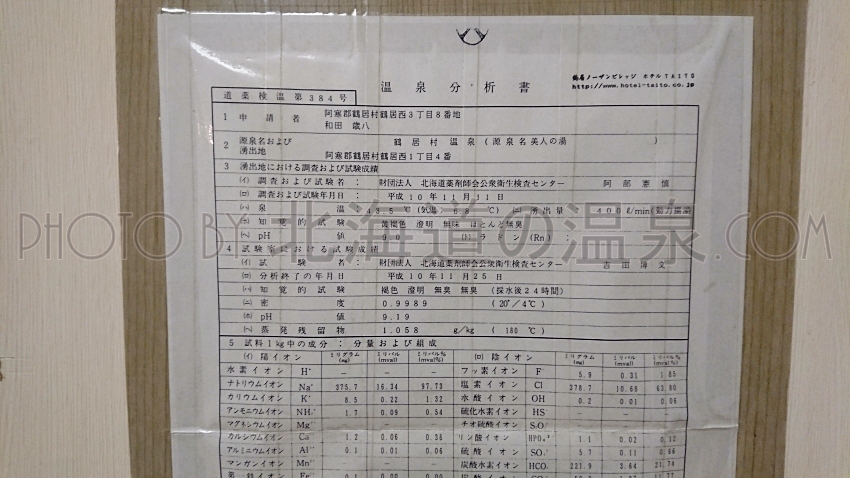 温泉分析書
鶴居ノーザンビレッジ ホテルTAITO
http://www.hotel-taito.co.jp
道薬検温第384号
1 申請者 阿寒郡鶴居村鶴居西3丁目8番地
和田 歳八
2 源泉名および湧出地 鶴居村 温泉(源泉名美人の湯 )
阿寒郡鶴居村鶴居西1丁目4番
3 湧出地における調査および試験成績
(イ)調査および試験者: 財団法人 北海道薬剤師会公衆衛生検査センター 阿部憲慎
(ロ)調査および試験年月日: 平成10年11月11日
(ハ)泉温 43.5℃(気温 ℃) (ニ)湧出量 400ℓ/min(動力揚湯)
(ホ)知覚的試験 黄褐色 澄明 無味 ほとんど無臭
(ヘ)pH 9.0 (ト)ラドン(Rn):
4 試験室における試験成績
(イ)試験者: 財団法人 北海道薬剤師会公衆衛生検査センター 吉田博文
(ロ)分析終了の年月日 平成10年11月25日
(ハ)知覚的試験 褐色 澄明 無臭 無臭 (採水後24時間)
(ニ)密度 0.9989 (20°/4℃)
(ホ)pH 9.19
(ヘ)蒸発残留物 1.058 g/kg (180℃)
5 試料1kg中の成分:分量および組成
(イ)陽イオン ミリグラム(mg) ミリバル(mval) ミリバル(mval%) (ロ)陰イオン ミリグラム(mg) ミリバル(mval) ミリバル(mval%)
水素イオン H⁺ − − − フッ素イオン F⁻ 5.9 0.31 1.85
ナトリウムイオン Na⁺ 375.7 16.34 97.73 塩素イオン Cl⁻ 378.7 10.68 63.80
カリウムイオン K⁺ 8.5 0.22 1.32 水酸イオン OH⁻ 0.2 0.01 0.06
アンモニウムイオン NH₄⁺ 1.7 0.09 0.54 硫化水素イオン HS⁻ − − −
マグネシウムイオン Mg²⁺ − − − チオ硫酸イオン S₂O₃²⁻ − − −
カルシウムイオン Ca²⁺ 1.2 0.06 0.36 リン酸イオン HPO₄²⁻ 1.1 0.02 0.12
アルミニウムイオン Al³⁺ 0.1 0.01 0.06 硫酸イオン SO₄²⁻ 5.7 0.11 0.66
マンガンイオン Mn²⁺ − − − 炭酸水素イオン HCO₃⁻ 221.9 3.64 21.74
第一鉄イオン Fe²⁺ 0.1 0.00 0.00
PHOTO BY 北海道の温泉.COM